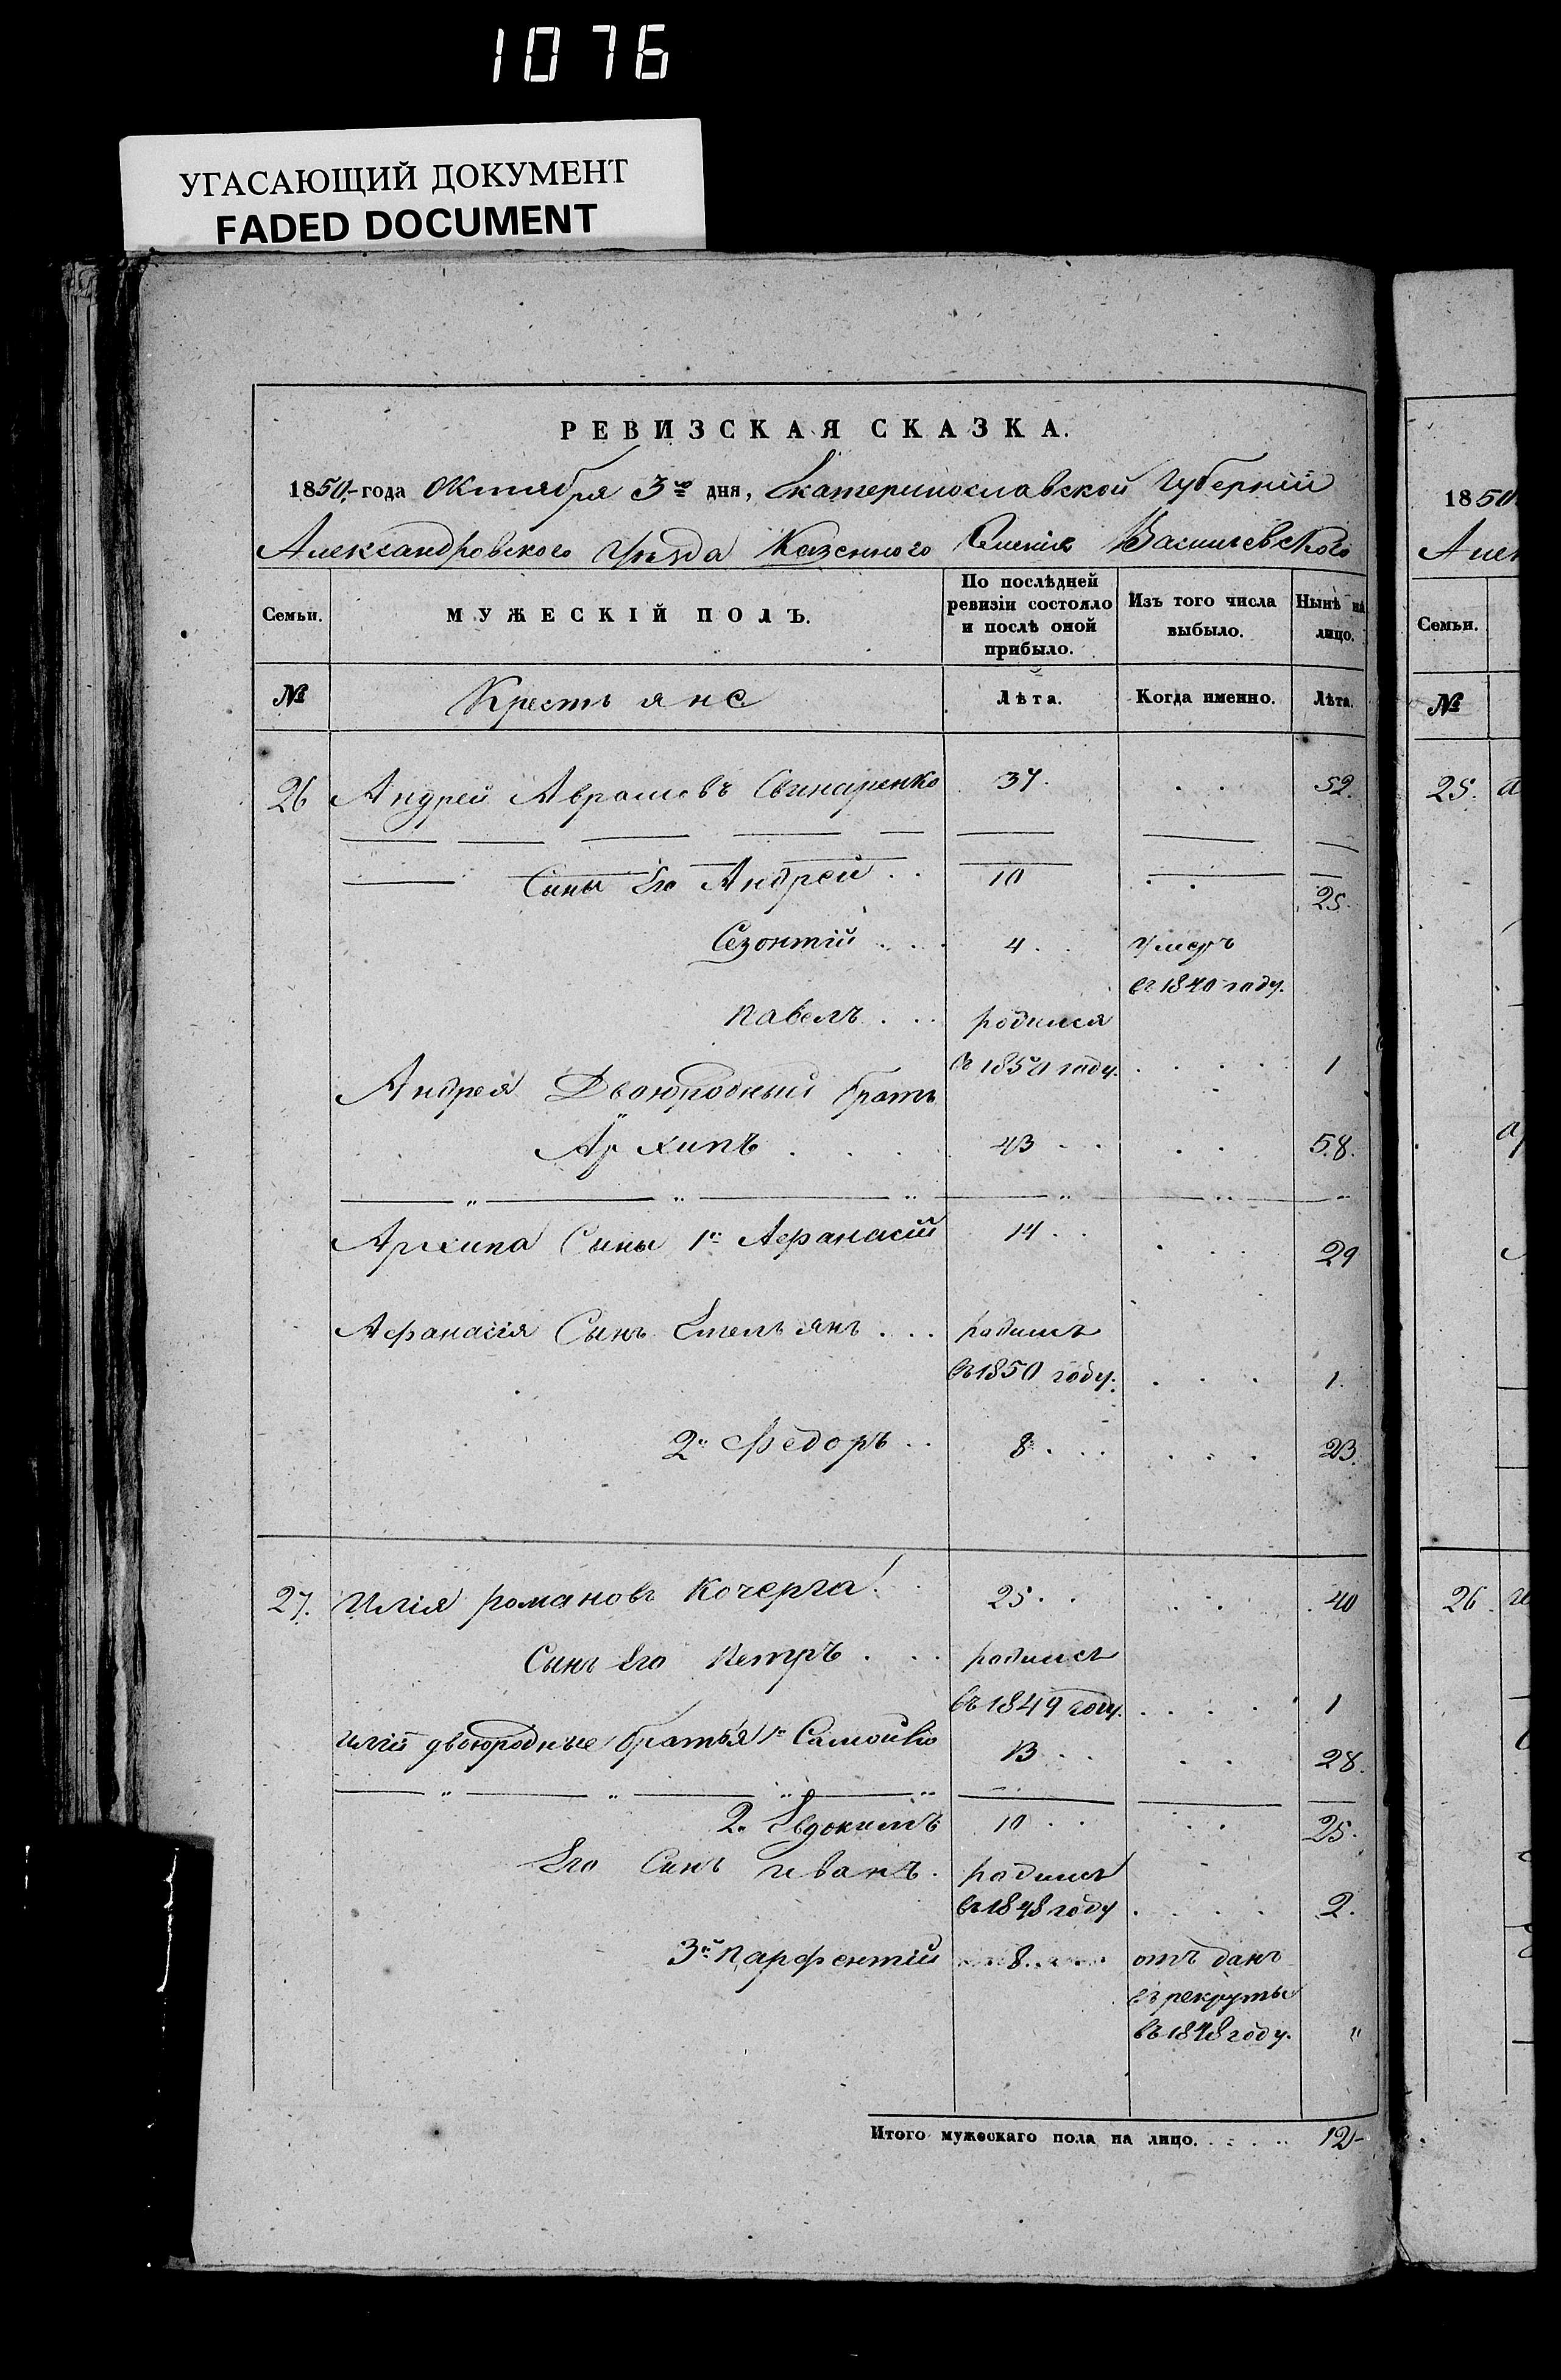 1076
УГАСАЮЩИЙ ДОКУМЕНТ
FADED DOCUMENT
РЕВИЗСКАЯ СКАЗКА.
1850.-года Октября 3го дня, Екатеринославской Губерніи
Александровского Уезда Казенного Селенія Васильевского
Семьи.
МУЖЕСКІЙ ПОЛЪ.
По послѣдней ревизіи состояло и послѣ оной прибыло.
Изъ того числа выбыло.
Нынѣ на лицо.
№ Крестьяне Лѣта. Когда именно. Лѣта.
26 Андрей Аврамовъ Свинаренко 37. . . 52.
Сыны Его Андрей . . 10 . . 25.
Созонтій . . . 4 . . умеръ
въ 1840 году.
Павелъ . . . родился
въ 1850 году. . . . . 1
Андрея Двоюродный братъ
Архипъ . . . . 43 . . . . 58.
Архипа Сыны 1й Афанасій 14 . . . . . 29
Афанасія Сынъ Емельянъ . . . родился
въ 1850 году. . . . 1.
2й Федоръ . . 8 . . . . . . 23.
27. Илія романовъ Кочерга . . 25 . . . . . 40
Сынъ Его Петръ . . . родился
въ 1849 году. . . . . 1
иліи двоюродные братья 1й Самойло 13 . . . . 28.
2й Евдокимъ 10 . . . . 25.
Его Сынъ иванъ. родился
въ 1848 году . . . . 2.
3й парфентій . . . 8 . . . . отъ данъ
въ рекруты
въ 1848 году. "
Итого мужескаго пола на лицо. . . . . . 12
1850
Але
Семьи.
№
25.
26.